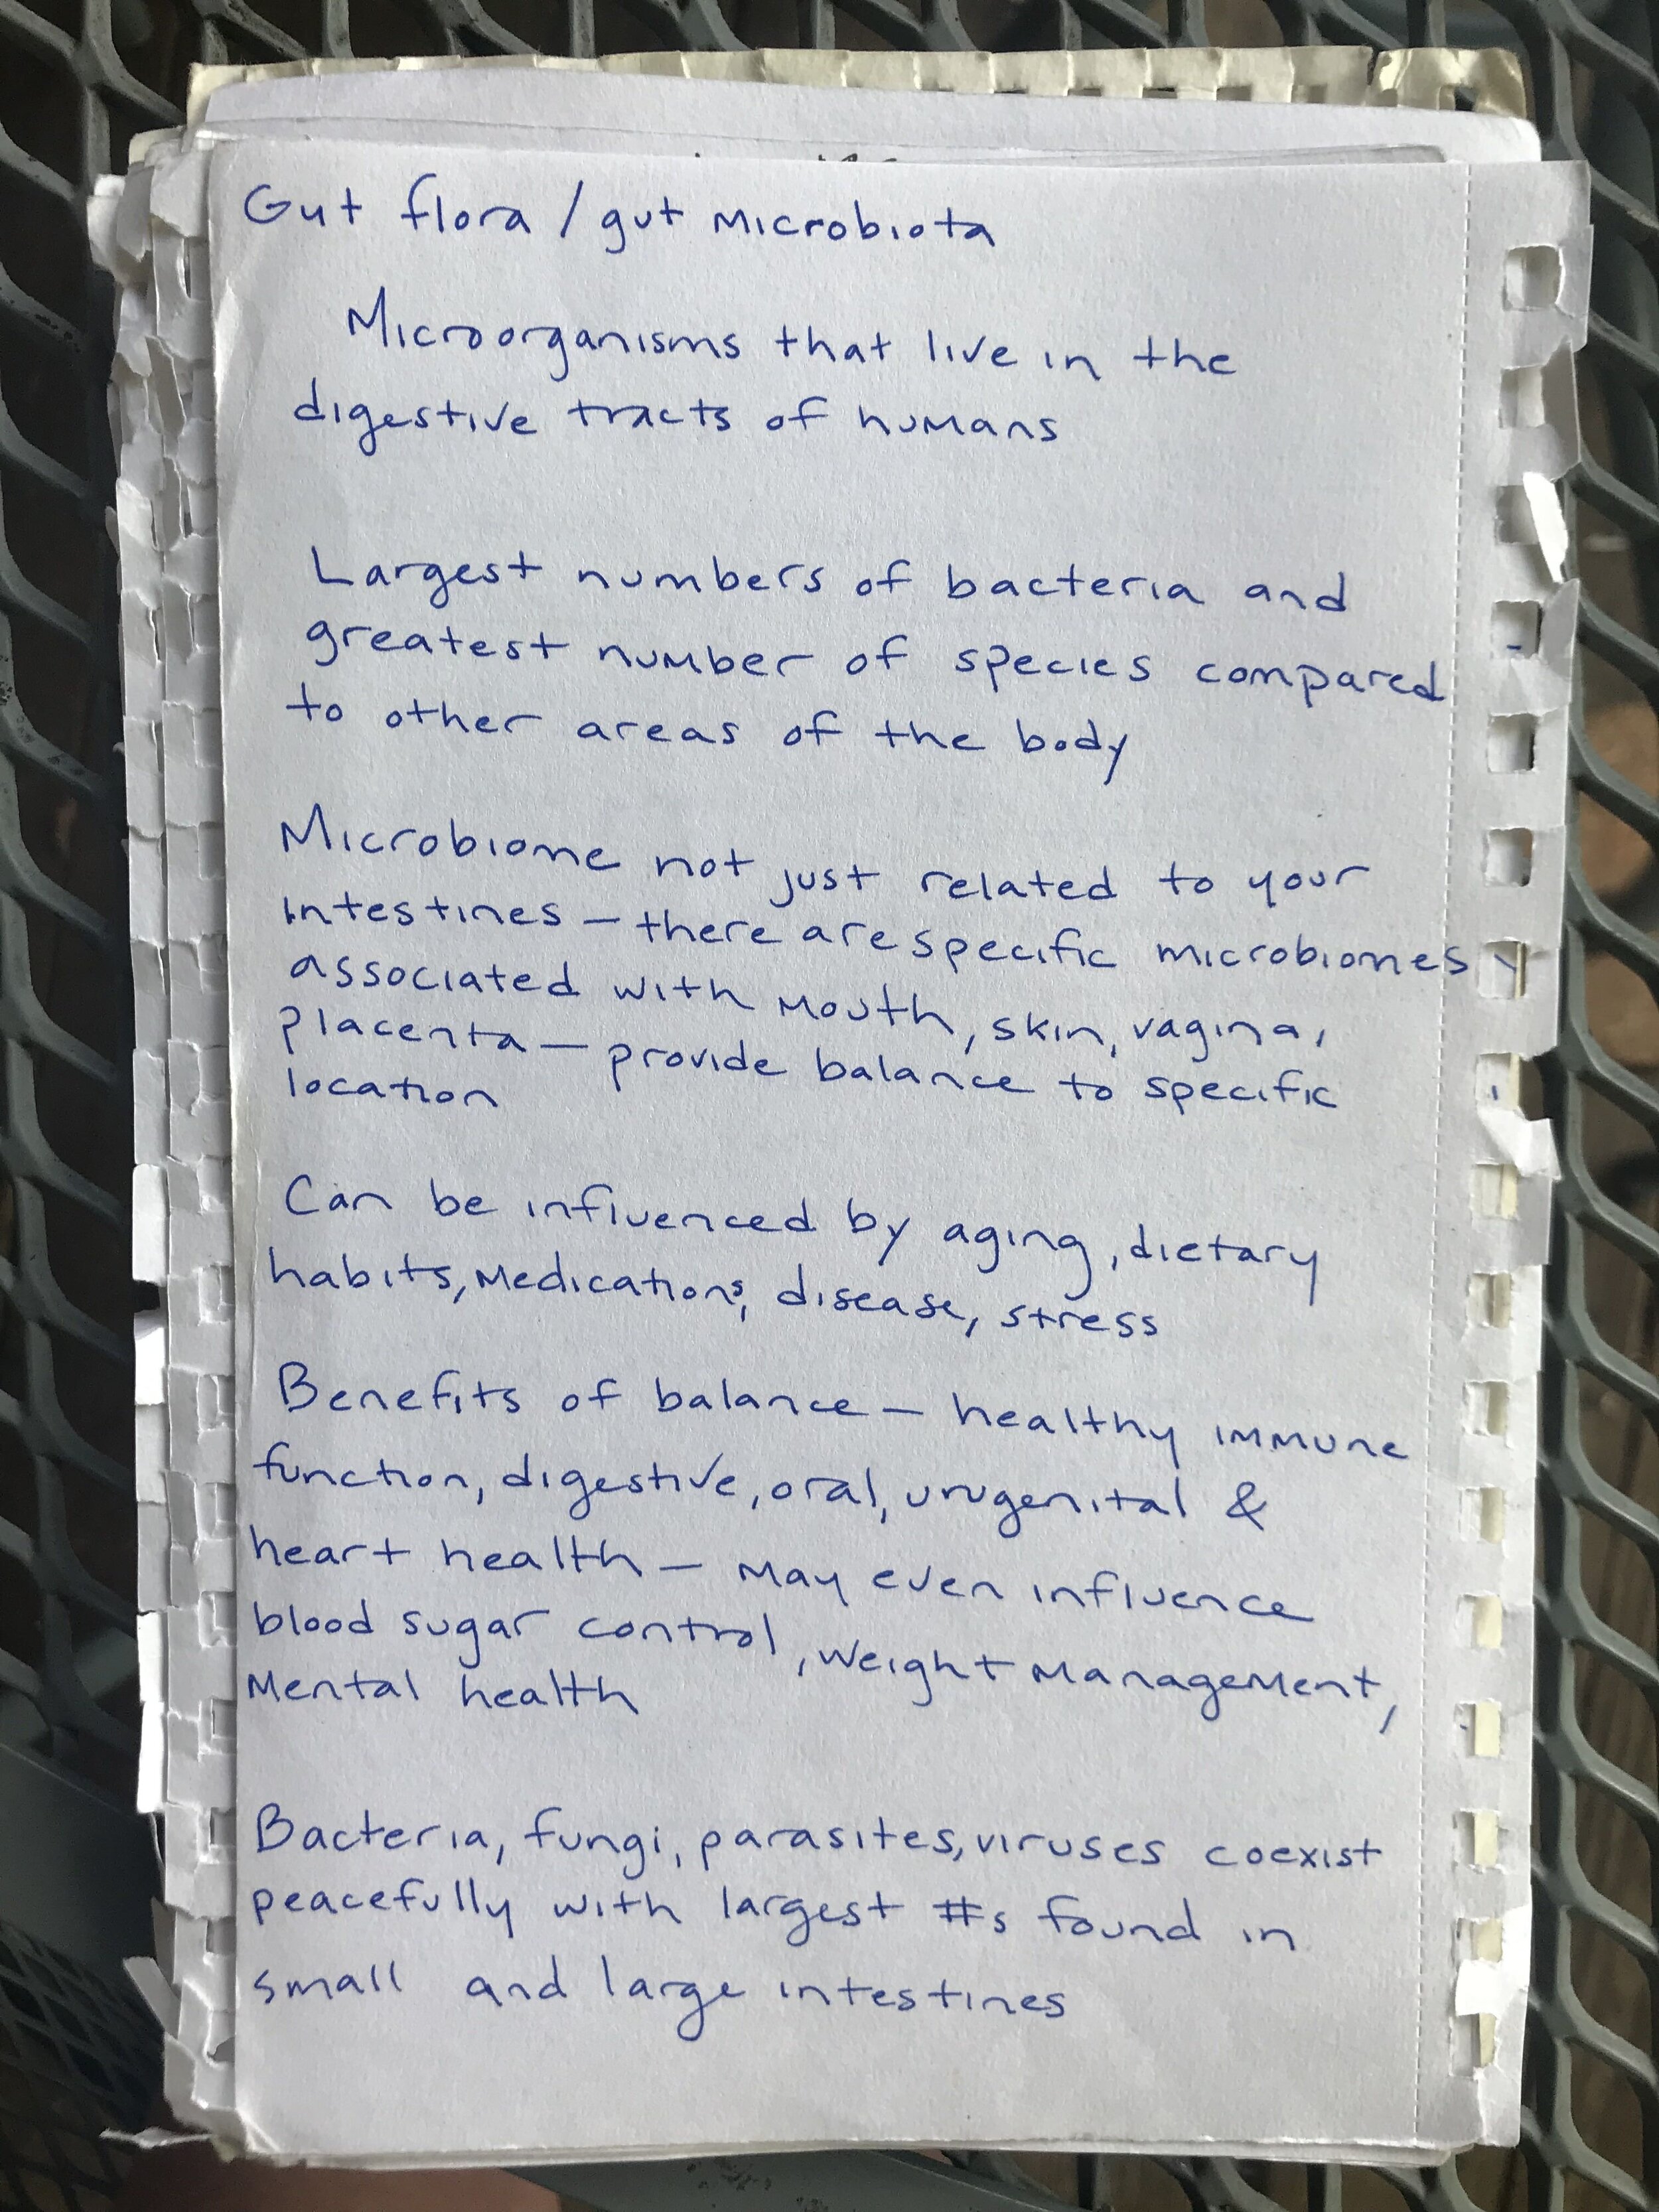 Gut flora / gut microbiota
Microorganisms that live in the
digestive tracts of humans
Largest numbers of bacteria and
greatest number of species compared
to other areas of the body
Microbiome not just related to your
intestines — there are specific microbiomes
associated with mouth, skin, vagina,
placenta — provide balance to specific
location
Can be influenced by aging, dietary
habits, medications, disease, stress
Benefits of balance — healthy immune
function, digestive, oral, urogenital &
heart health — may even influence
blood sugar control, weight management,
mental health
Bacteria, fungi, parasites, viruses coexist
peacefully with largest #s found in
small and large intestines